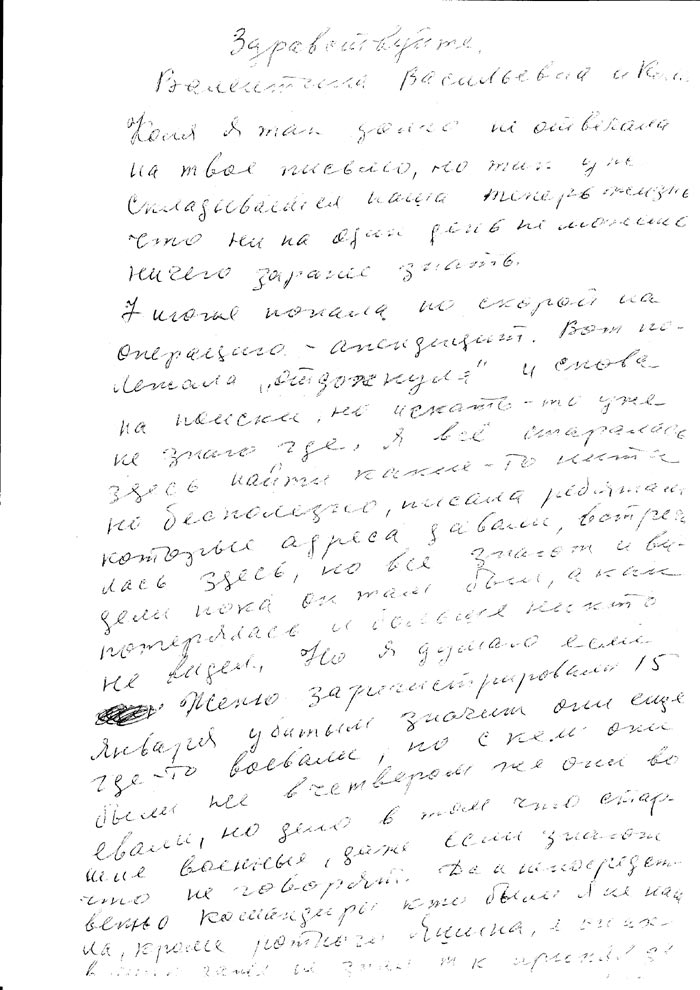 Здравствуйте,
Валентина Васильевна и Коля
Коля я так долго не отвечала
на твое письмо, но так уж
складывается наша теперь жизнь
что ни на один день не можешь
ничего заранее знать.
Я тоже попала по скорой на
операцию - апендицит. Вот по-
лежала „отдохнула" и снова
на поиски, но искать-то уже
не знаю где. Я всё старалась
здесь найти какие-то нити
но бесполезно, писала ребятам
которые адреса давали, встреча
лась здесь, но все знают и ви-
дели пока он там был, а как
потерялась и больше никто
не видел. Но я думаю если
Женю зарегистрировали 15
января убитым значит они еще
где-то воевали, но с кем они
были не вчетвером же они во
евали, но дело в том что стар-
шие военные, даже если знают
что не говорят. Да и непосредст-
венно командиры кто были я не наш
ла, кроме ротного и он их
не знал т к принял